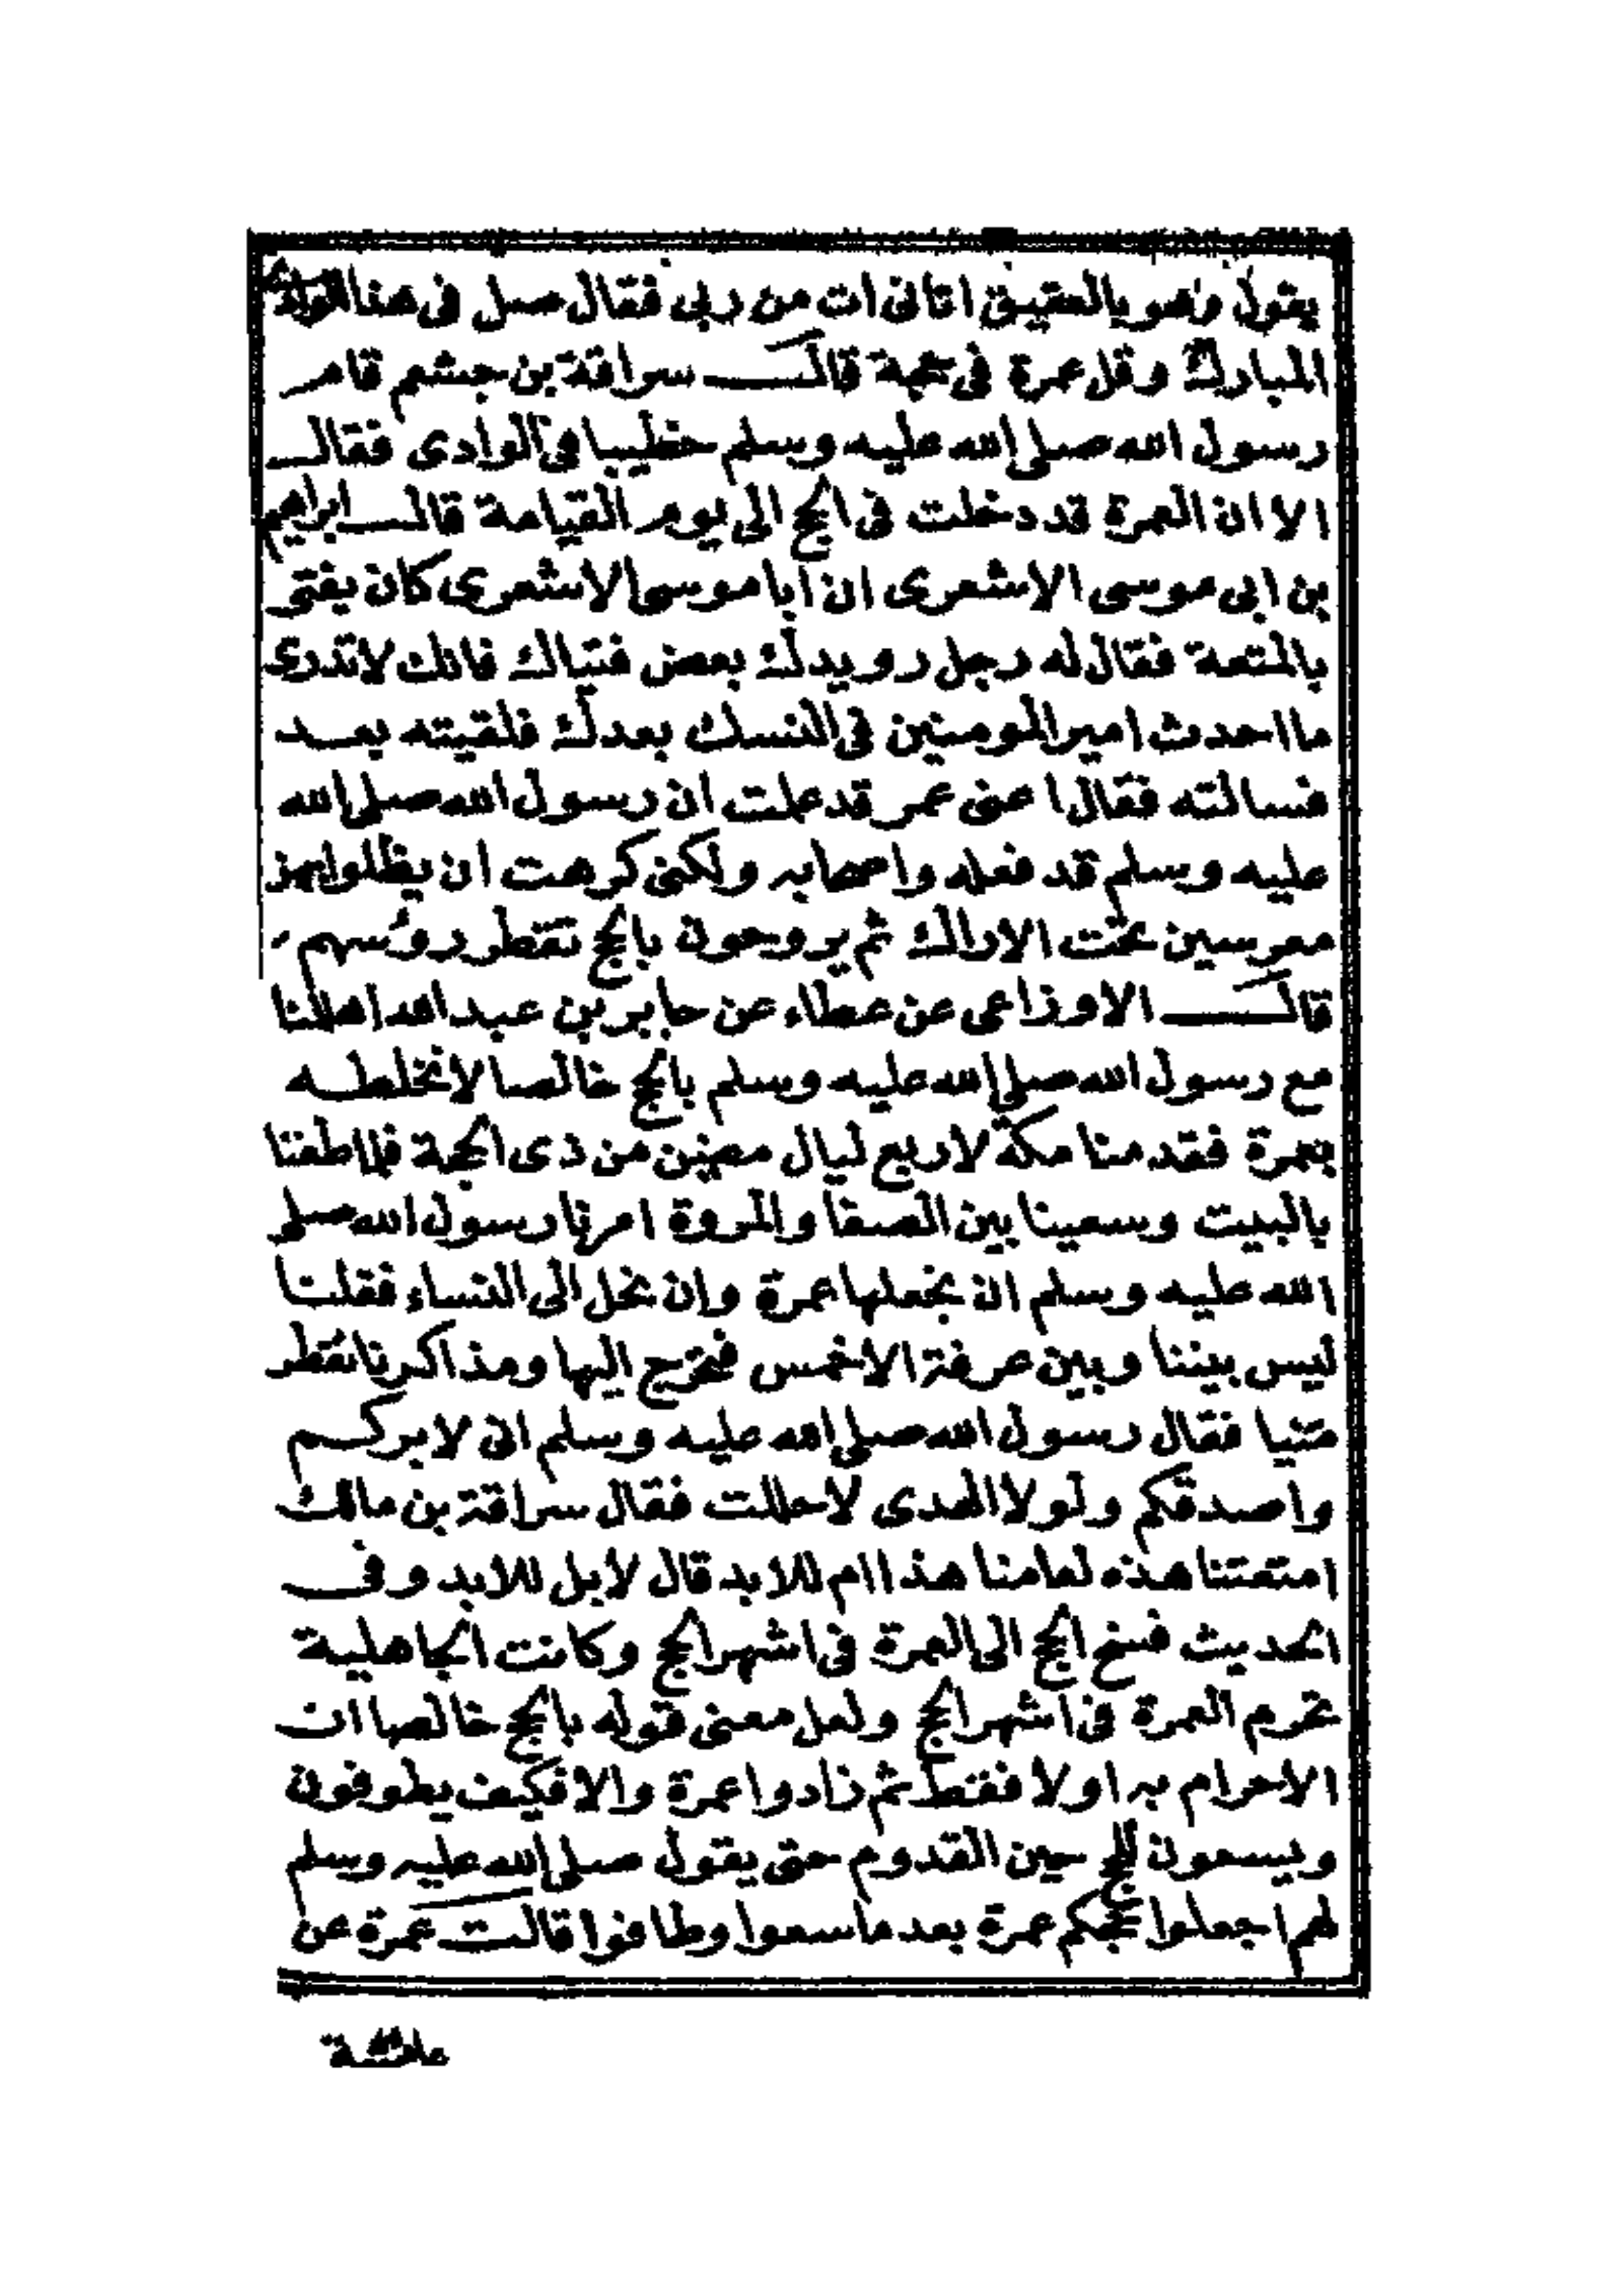 يقول وهو بالعقيق اتانى ات من ربى فقال صل فى هذا الوادى
المبارك وقل عمرة فى حجة قالــــ سراقة بن جشم قام
رسول الله صلى الله عليه وسلم خطيبا فى الوادى فقالــ
الا ان العمرة قد دخلت فى الحج الى يوم القيامة قالــ ابراهيم
بن ابى موسى الاشعرى ان ابا موسى الاشعرى كان يفتى
بالمتعة فقال له رجل رويدك بعض فتياك فانك لا تدرى
ما احدث امير المومنين فى النسك بعدك فلقيته بعــد
فسالته فقال اعنى عمر قد علمت ان رسول الله صلى الله
عليه وسلم قد فعله واصحابه ولكنى كرهت ان يظلوا بهن
معرسين تحت الاراك ثم يروحون بالحج تقطر روسهم
قالـــــ الاوزاعى عن عطاء عن جابر بن عبد الله اهللنا
مع رسول الله صلى الله عليه وسلم بالحج خالصا لا نخلطــه
بعمرة فقدمنا مكة لاربع ليال مضين من ذى الحجة فلما طفنا
بالبيت وسعينا بين الصفا والمروة امرنا رسول الله صلى
الله عليه وسلم ان نجعلها عمرة وان نحل الى النساء فقلنا
ليس بيننا وبين عرفة الا خمس فنخرج اليها ومذاكرنا تقطر
منيا فقال رسول الله صلى الله عليه وسلم انى لابركــم
واصدقكم ولولا الهدى لاحللت فقال سراقة بن مالك
امتعتنا هذه لعامنا هذا ام للابد قال لا بل للابد وفى
الحديث فسخ الحج الى العمرة فى اشهر الحج وكانت الجاهلية
تحرم العمرة فى اشهر الحج ولعل معنى قوله بالحج خالصا ان
الاحرام به اولا فقط ثم زادوا عمرة والا فكيف يطوفون
ويسعون للحج حين القدوم حتى يقول صلى الله عليه وسلم
لهم اجعلوا حجكم عمرة بعد ما سعوا وطافوا قالت عمرة عن
عائشة